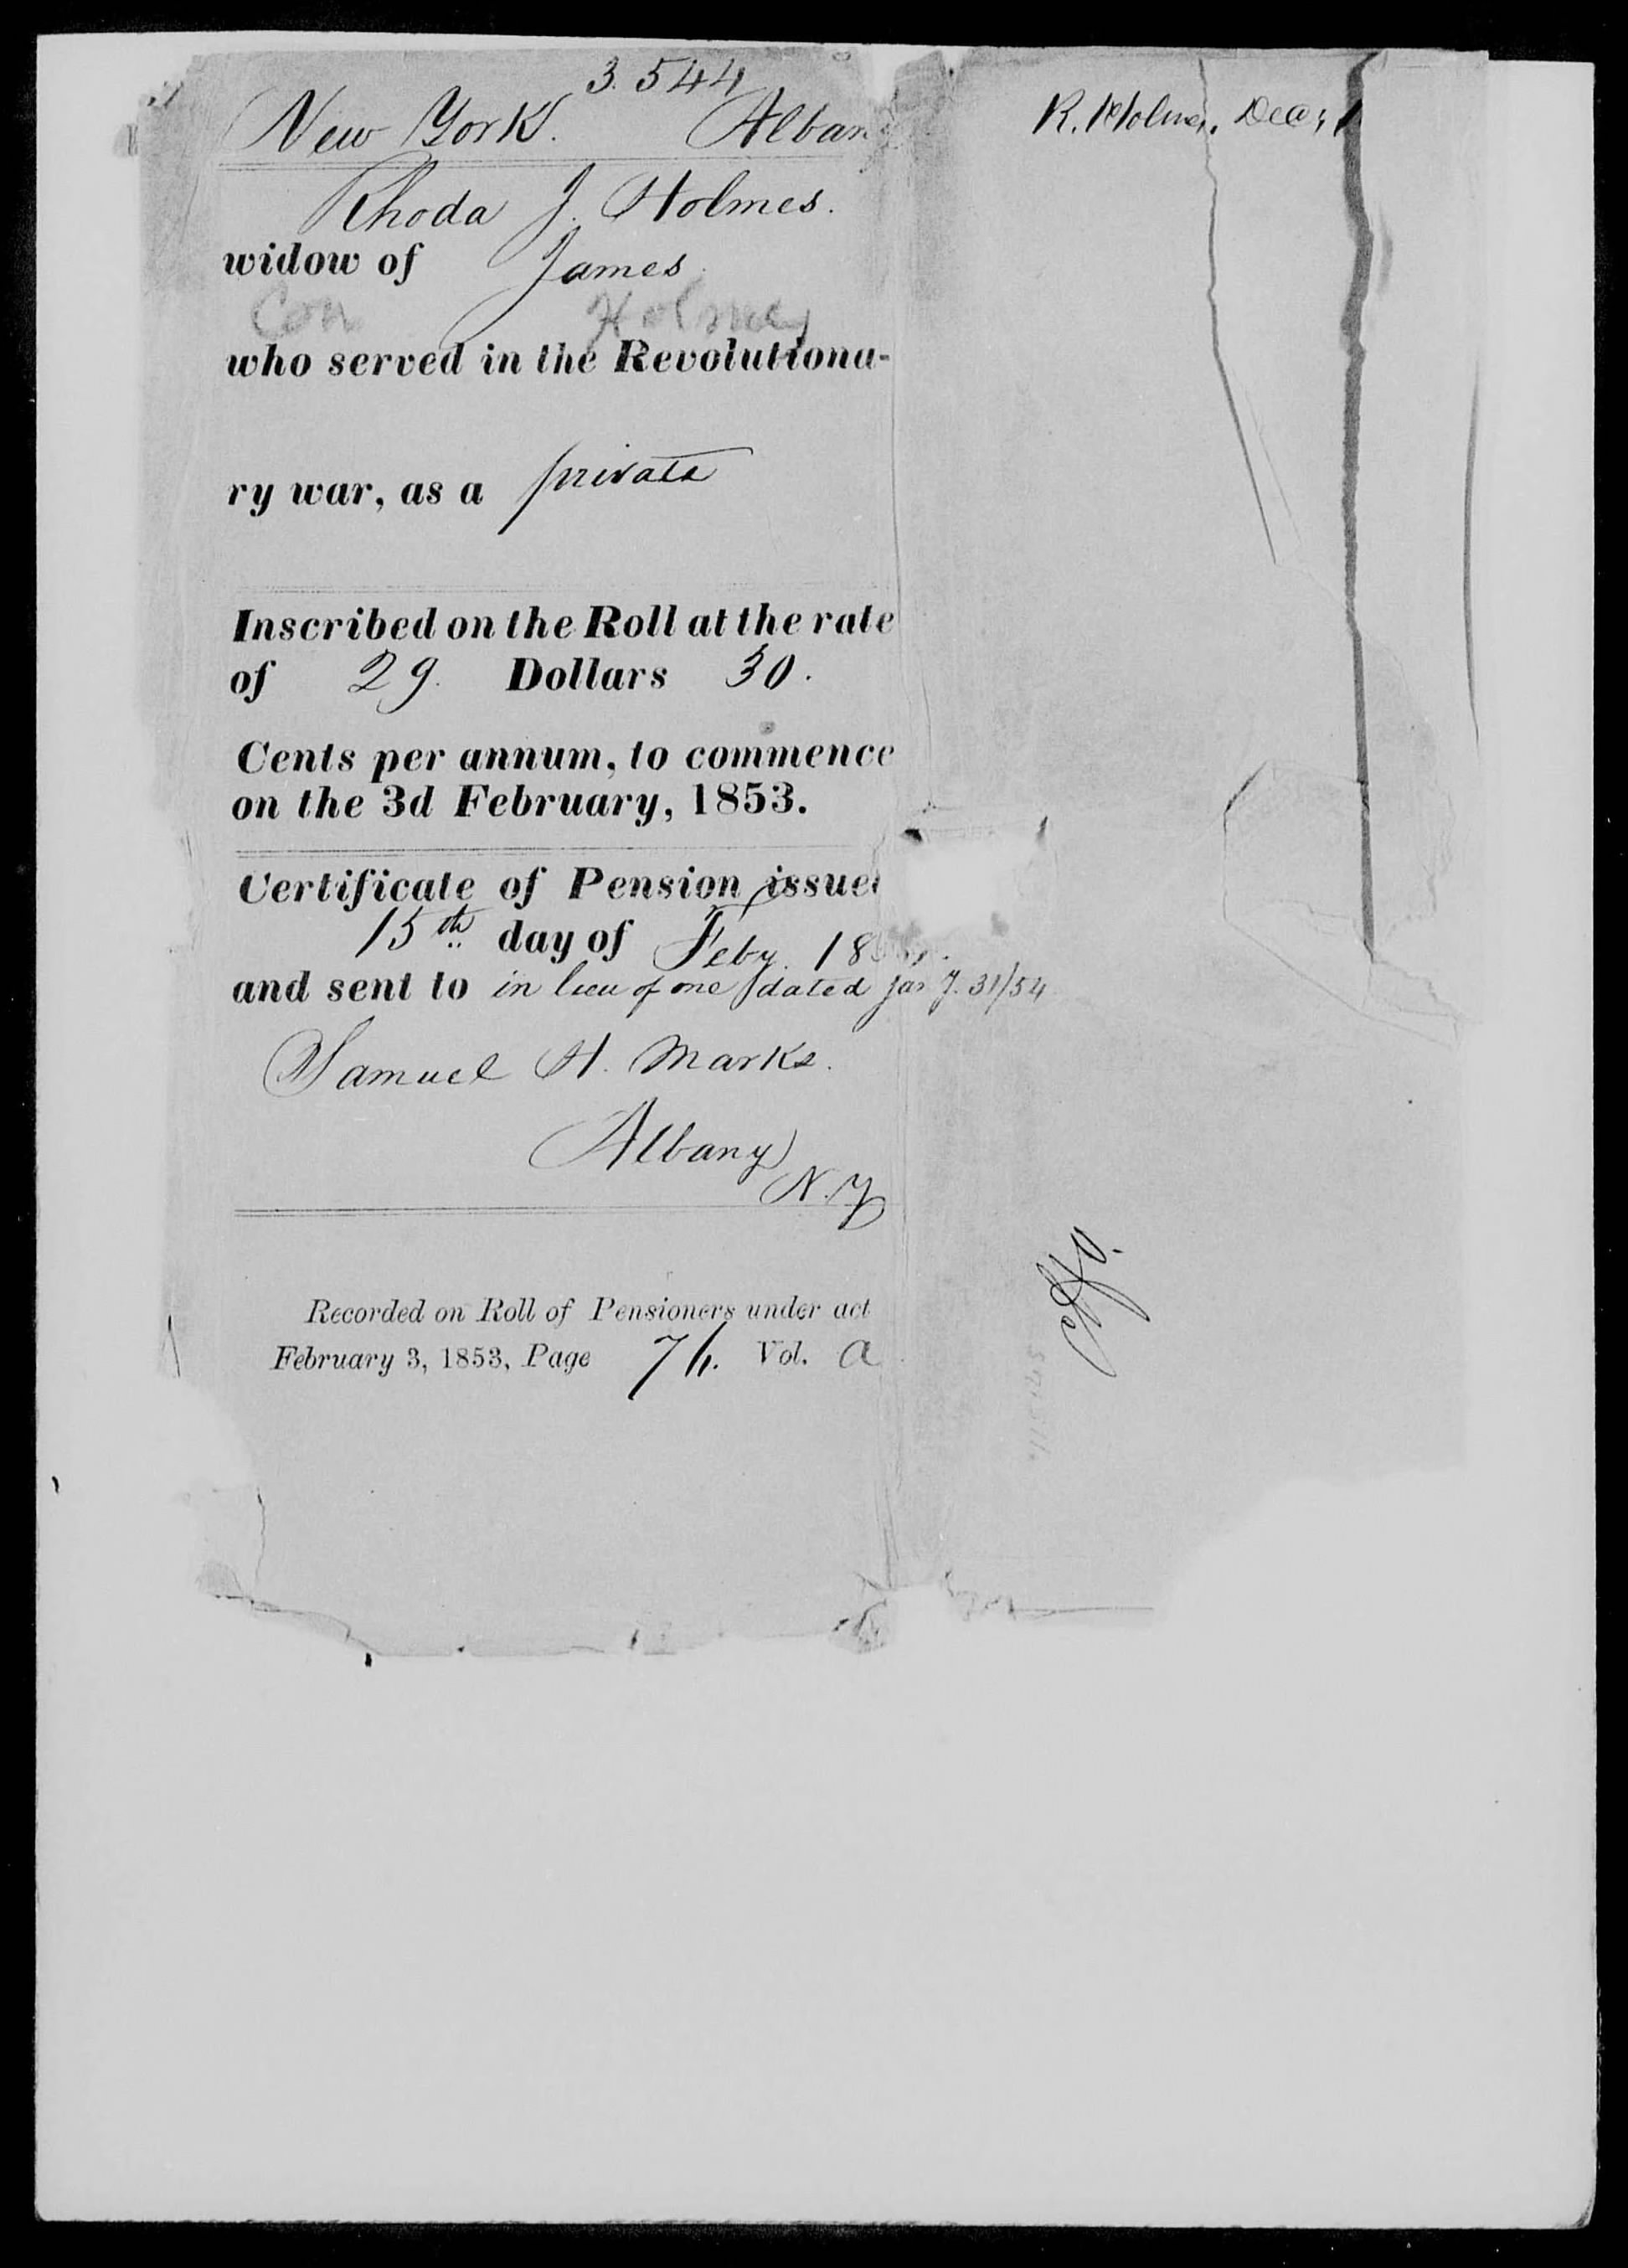 3.544
New York. Albany
Rhoda J. Holmes.
widow of James
Con Holmes
who served in the Revolutiona-
ry war, as a private
Inscribed on the Roll at the rate
of 29. Dollars 30.
Cents per annum, to commence
on the 3d February, 1853.
Certificate of Pension issued
15th day of Feby. 18
and sent to in lieu of one dated 31/54
Samuel H. Marks.
Albany
N.Y
Recorded on Roll of Pensioners under act
February 3, 1853, Page Vol. A
R. Holmes. Dec